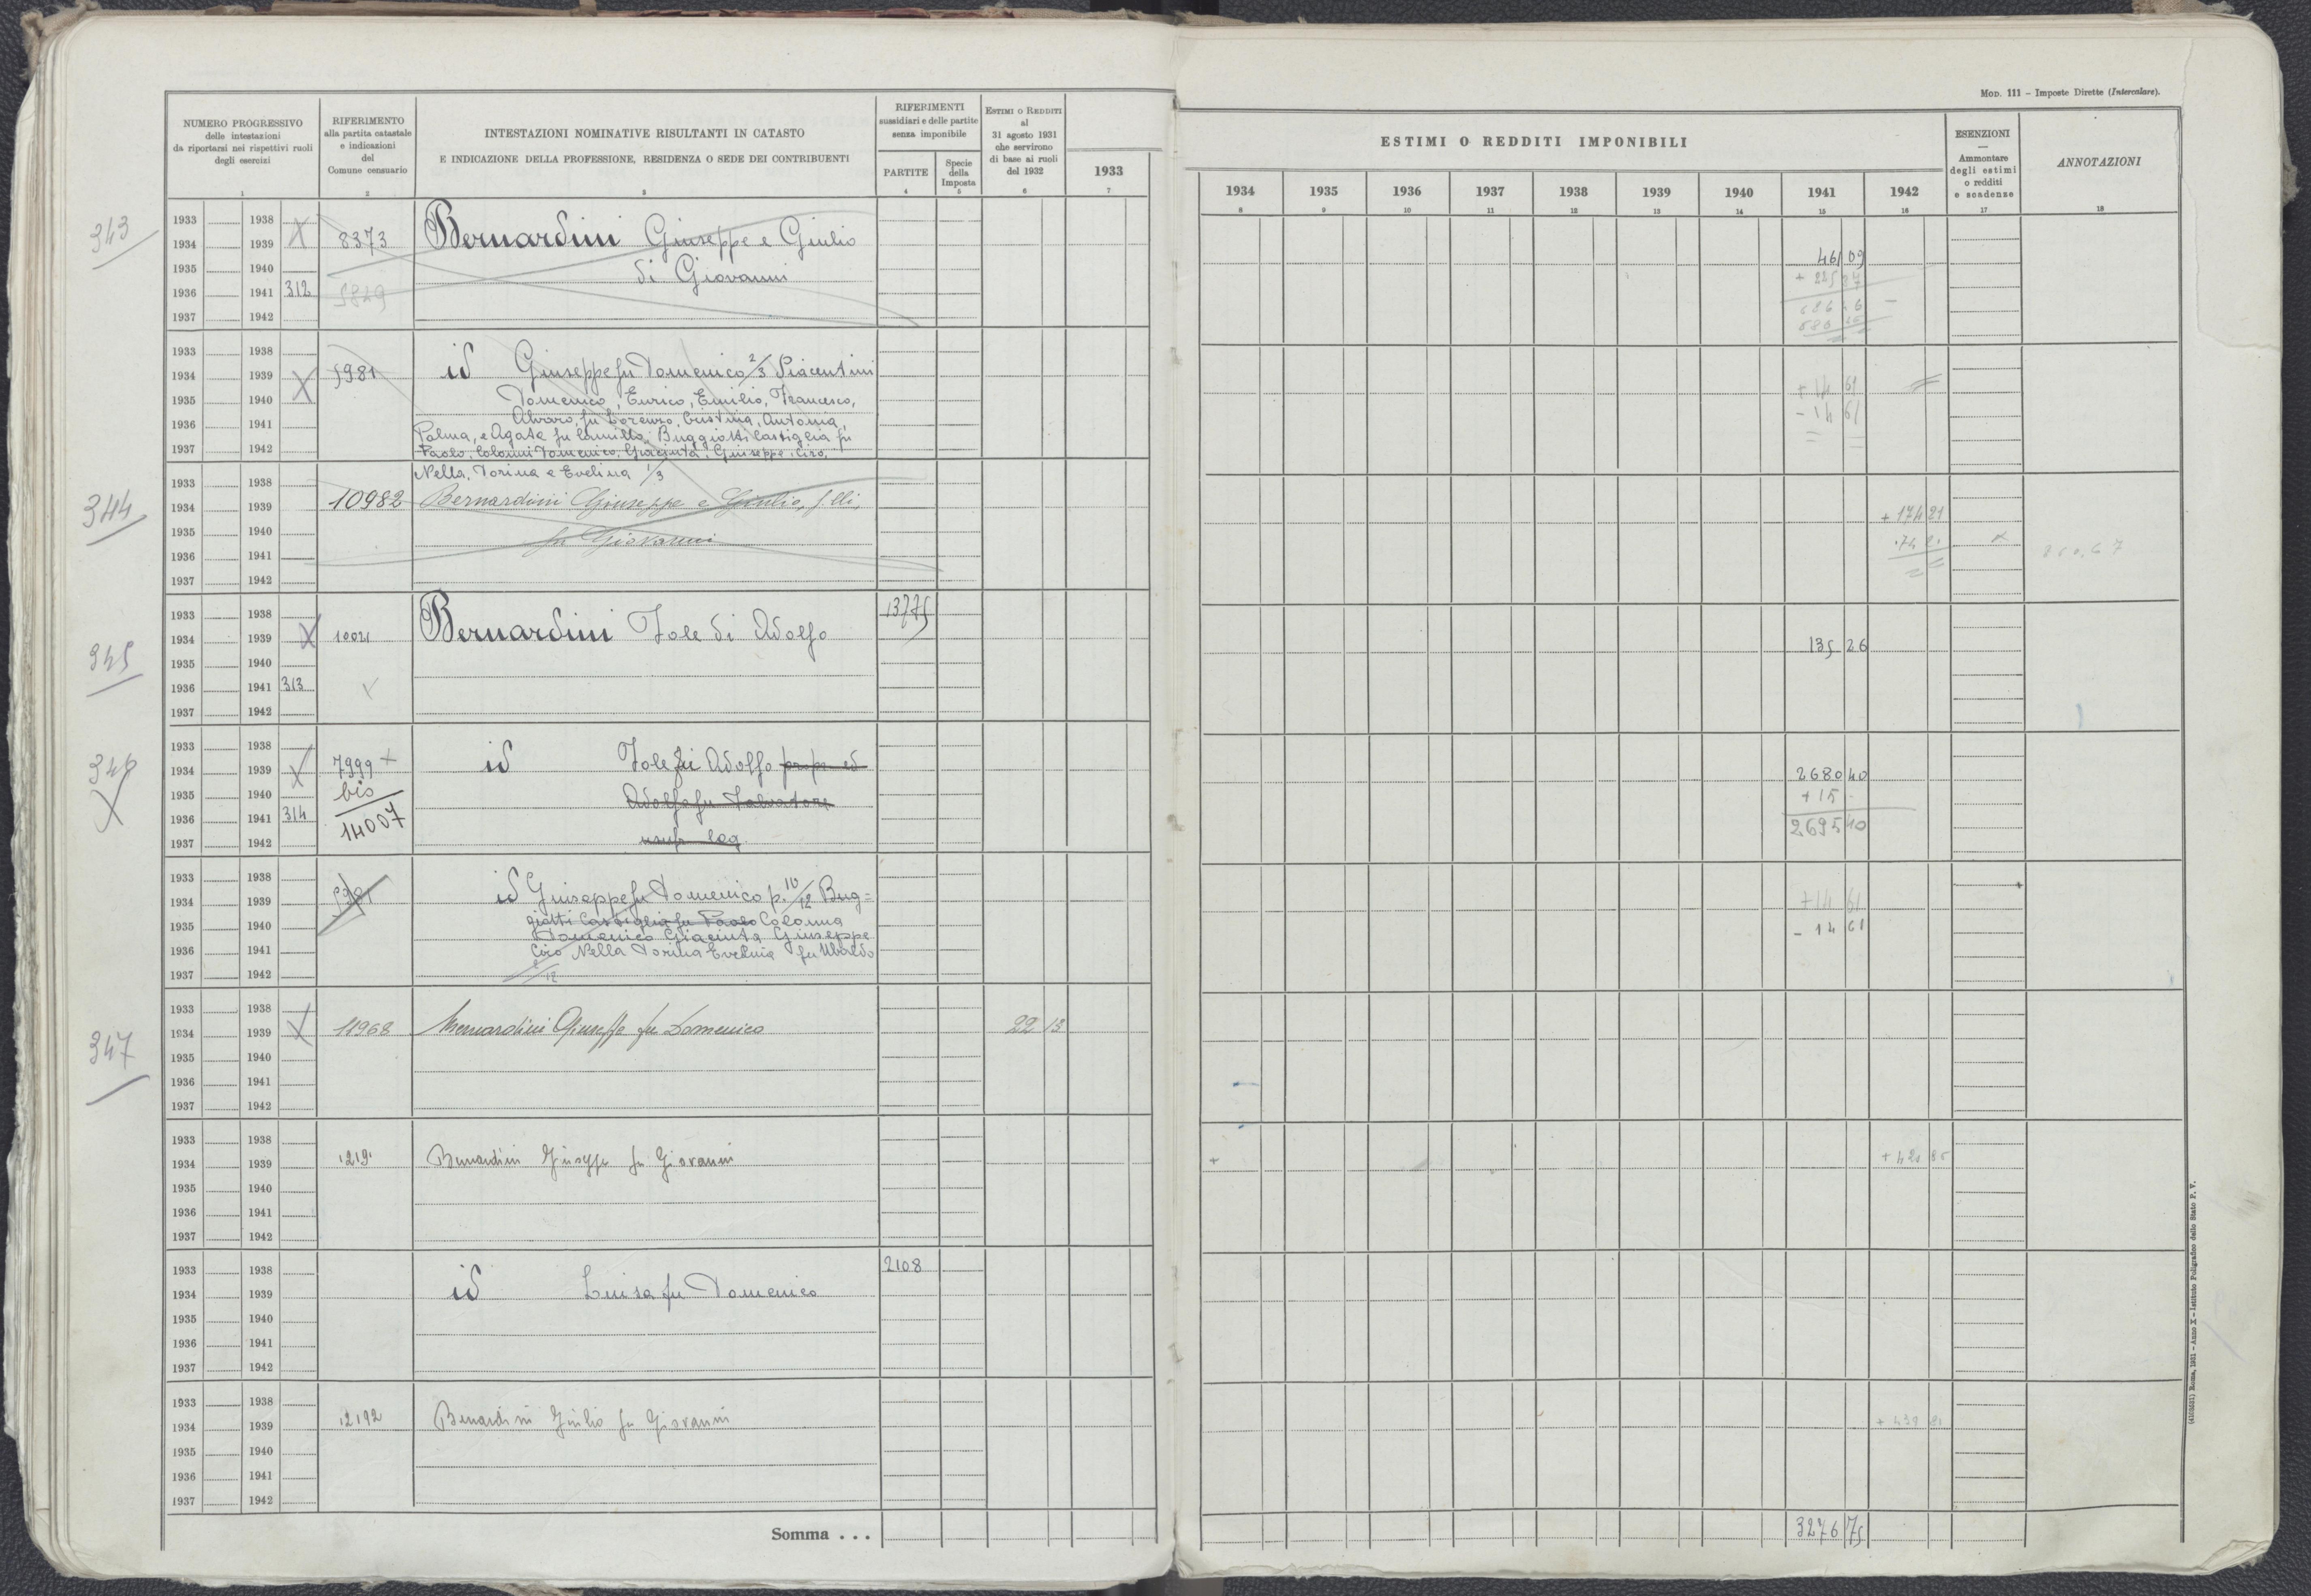 Mod. 111 – Imposte Dirette (Intercalare).
NUMERO PROGRESSIVO
delle intestazioni
da riportarsi nei rispettivi ruoli
degli esercizi
1
RIFERIMENTO
alla partita catastale
e indicazioni
del
Comune censuario
2
INTESTAZIONI NOMINATIVE RISULTANTI IN CATASTO
E INDICAZIONE DELLA PROFESSIONE, RESIDENZA O SEDE DEI CONTRIBUENTI
3
RIFERIMENTI
sussidiari e delle partite
senza imponibile
PARTITE
4
Specie
della
Imposta
5
Estimi o Redditi
al
31 agosto 1931
che servirono
di base ai ruoli
del 1932
6
1933
7
ESTIMI O REDDITI IMPONIBILI
1934 1935 1936 1937 1938 1939 1940 1941 1942
8 9 10 11 12 13 14 15 16
ESENZIONI
—
Ammontare
degli estimi
o redditi
e scadenze
17
ANNOTAZIONI
18
343
1933 1938
1934 1939 X 8373 Bernardini Giuseppe e Giulio
1935 1940 di Giovanni 461 09
1936 1941 312 5849
1937 1942
1933 1938
1934 1939 X 5981 id Giuseppe fu Domenico 2/3 Piacentini
1935 1940 Domenico, Enrico, Emilio, Francesco, + 14 61
1936 1941 Alvaro, fu Lorenzo, Cristina, Antonia, - 14 61
Palma, e Agata fu Camillo, Buggiotti Castiglia fu
1937 1942 Paolo, Colonni Domenico, Giacinta, Giuseppe, Ciro,
Nella, Dorina e Evelina 1/3
344
1933 1938
1934 1939 10982 Bernardini Giuseppe e Giulio, f.lli, + 174 21
1935 1940 fu Giovanni
1936 1941
1937 1942
345
1933 1938 13775
1934 1939 X 10021 Bernardini Iole di Adolfo 135 26
1935 1940
1936 1941 313 X
1937 1942
346
X
1933 1938
1934 1939 X 7999 + id Iole di Adolfo prop. ed 2680 40
1935 1940 bis Adolfo fu Salvatore + 15 -
1936 1941 314 14007 2695 40
1937 1942 usuf. leg.
1933 1938
1934 1939 5981 id Giuseppe fu Domenico p. 10/12 Bug= + 14 61
giotti Castiglia fu Paolo Colonna
1935 1940 Domenico Giacinta Giuseppe - 14 61
1936 1941 Ciro Nella Dorina Evelina fu Ubaldo
1937 1942 2/12
347
1933 1938
1934 1939 X 11968 Bernardini Giuseppe fu Domenico 22 13
1935 1940
1936 1941
1937 1942
1933 1938
1934 1939 Bernardini Giuseppe fu Giovanni
1935 1940
1936 1941
1937 1942
1933 1938 2108
1934 1939 id Luisa fu Domenico
1935 1940
1936 1941
1937 1942
1933 1938
1934 1939 12192 Bernardini Giulio fu Giovanni
1935 1940
1936 1941
1937 1942
Somma . . . 3276 75
(4103531) Roma, 1931 – Anno X – Istituto Poligrafico dello Stato P. V.